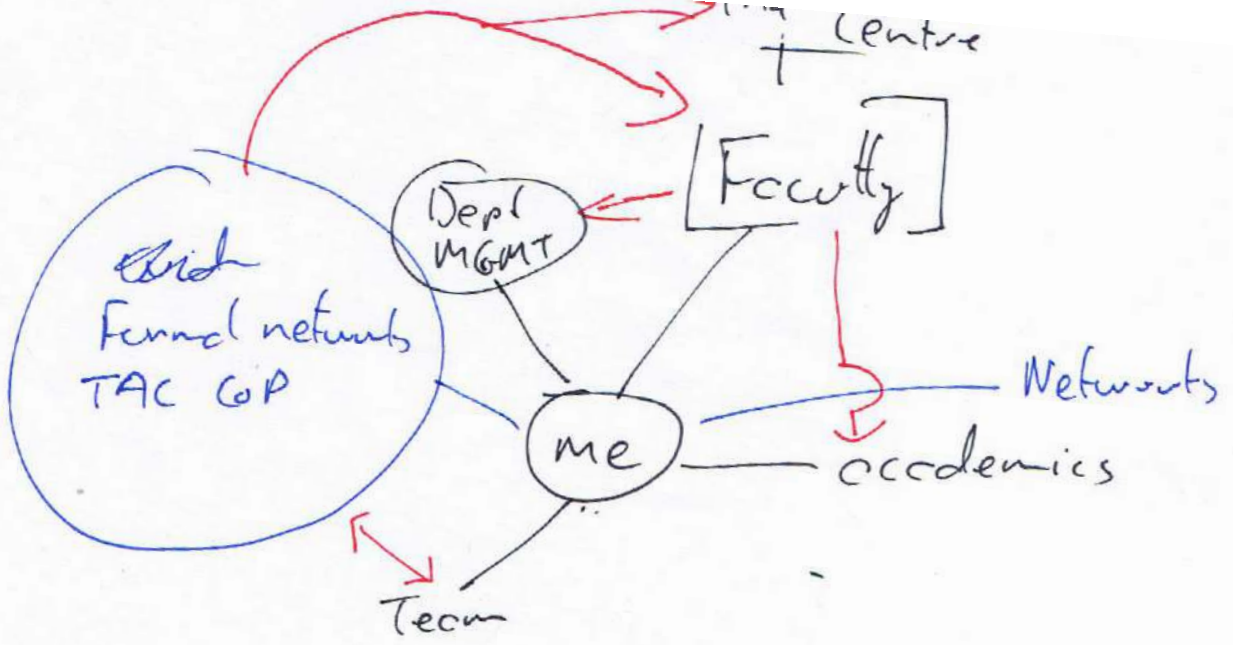 Centre
[Faculty]
Dept
MGMT
Formal networks
TAC CoP
Networks
me
academics
Team